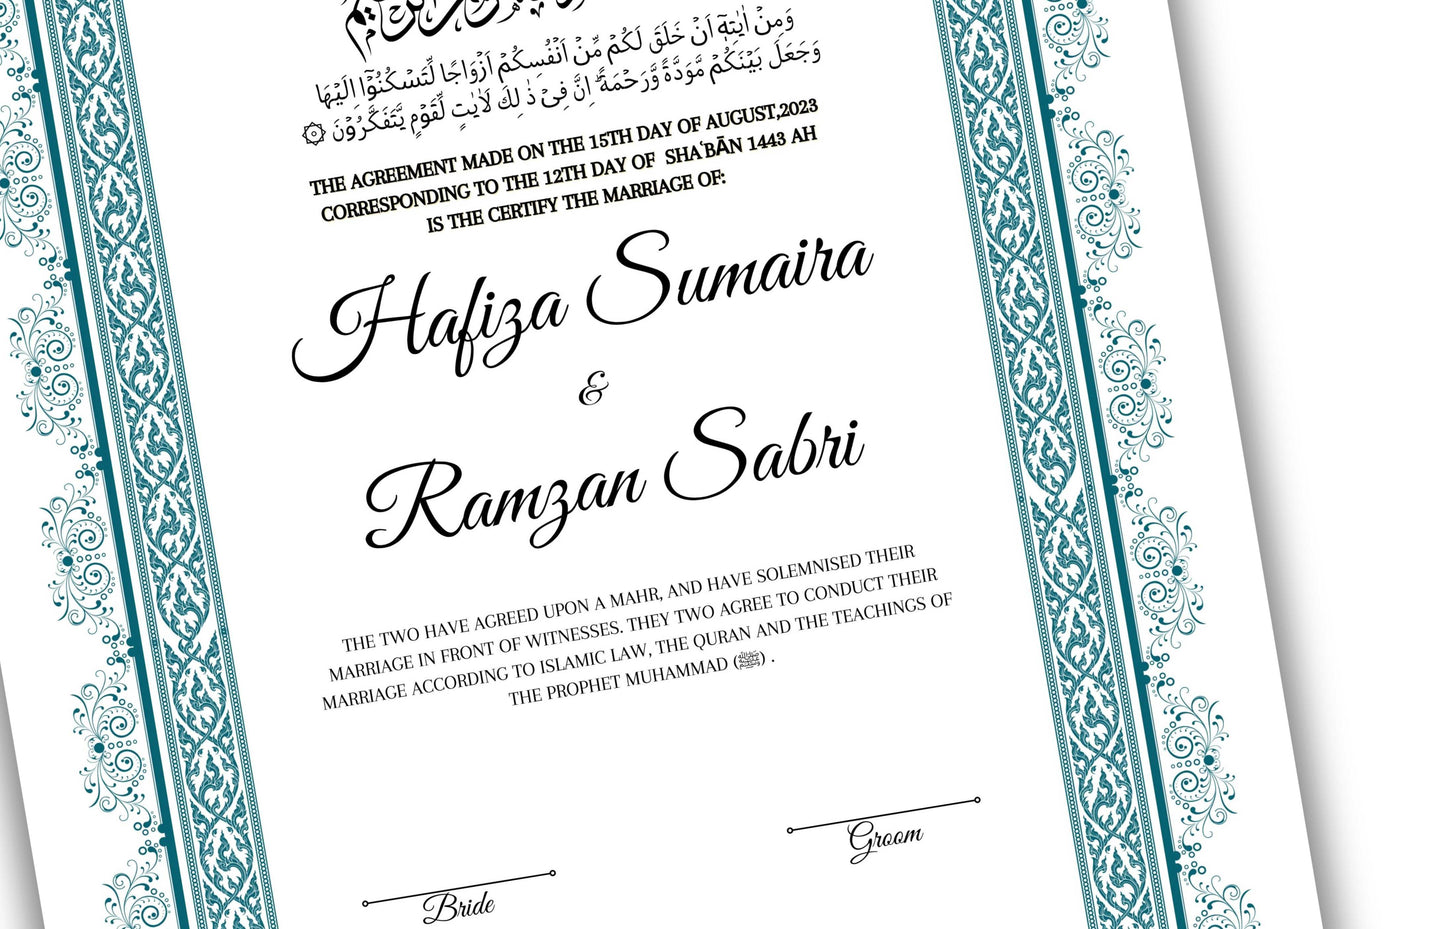 وَمِنْ اٰيٰتِهٖٓ اَنْ خَلَقَ لَكُمْ مِّنْ اَنْفُسِكُمْ اَزْوَاجًا لِّتَسْكُنُوْٓا اِلَيْهَا
وَجَعَلَ بَيْنَكُمْ مَّوَدَّةً وَّرَحْمَةً ؕ اِنَّ فِيْ ذٰ لِكَ لَاٰيٰتٍ لِّقَوْمٍ يَّتَفَكَّرُوْنَ ۞
THE AGREEMENT MADE ON THE 15TH DAY OF AUGUST,2023
CORRESPONDING TO THE 12TH DAY OF SHAʿBĀN 1443 AH
IS THE CERTIFY THE MARRIAGE OF:
Hafiza Sumaira
&
Ramzan Sabri
THE TWO HAVE AGREED UPON A MAHR, AND HAVE SOLEMNISED THEIR
MARRIAGE IN FRONT OF WITNESSES. THEY TWO AGREE TO CONDUCT THEIR
MARRIAGE ACCORDING TO ISLAMIC LAW, THE QURAN AND THE TEACHINGS OF
THE PROPHET MUHAMMAD (ﷺ) .
Groom
Bride